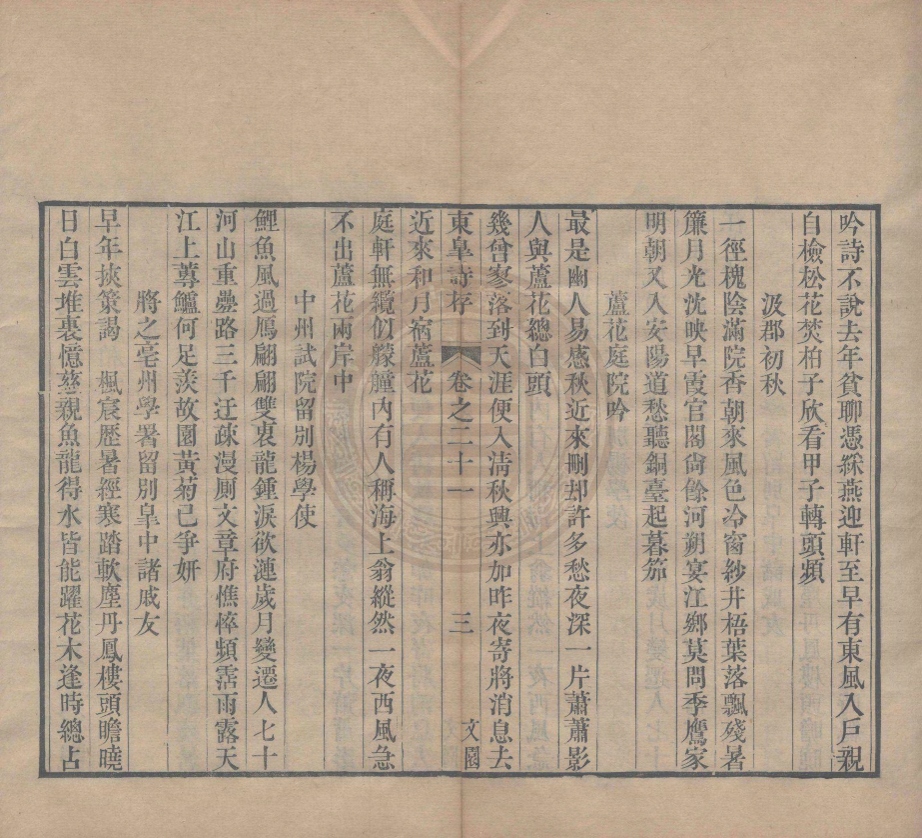 吟詩不說去年貧聊憑綵燕迎軒至早有東風入戸親
自檢松花焚柏子欣看甲子轉頭頻
汲郡初秋
一徑槐陰滿院香朝來風色冷窗紗井梧葉落飄殘暑
簾月光沈映早霞官閣尙餘河朔宴江鄉莫問季鷹家
明朝又入安陽道愁聽銅臺起暮笳
蘆花庭院吟
最是幽人易感秋近來刪却許多愁夜深一片蕭蕭影
人與蘆花總白頭
幾曾寥落到天涯便入淸秋興亦加昨夜寄將消息去
東臯詩存 卷之二十一 三 文園
近來和月宿蘆花
庭軒無纜似艨艟內有人稱海上翁縱然一夜西風急
不出蘆花兩岸中
中州試院留別楊學使
鯉魚風過鴈翩翩雙袠龍鍾淚欲漣歲月變遷人七十
河山重疊路三千迂疎漫厠文章府憔悴頻霑雨露天
江上蓴鱸何足羨故園黃菊已爭妍
將之亳州學署留別臯中諸戚友
早年挾策謁 楓宸歷暑經寒踏軟塵丹鳳樓頭瞻曉
日白雲堆裏憶慈親魚龍得水皆能躍花木逢時總占